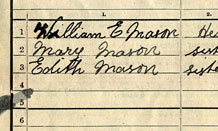 1. 2.
1 William E Mason Hea
2 Mary Mason sist
3 Edith Mason siste
4
5
6